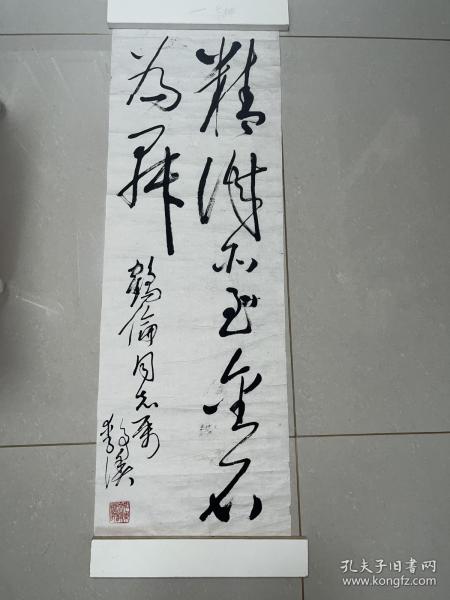 精诚所至金石
为开
鹤伦同志属
孔夫子旧书网
www.kongfz.com